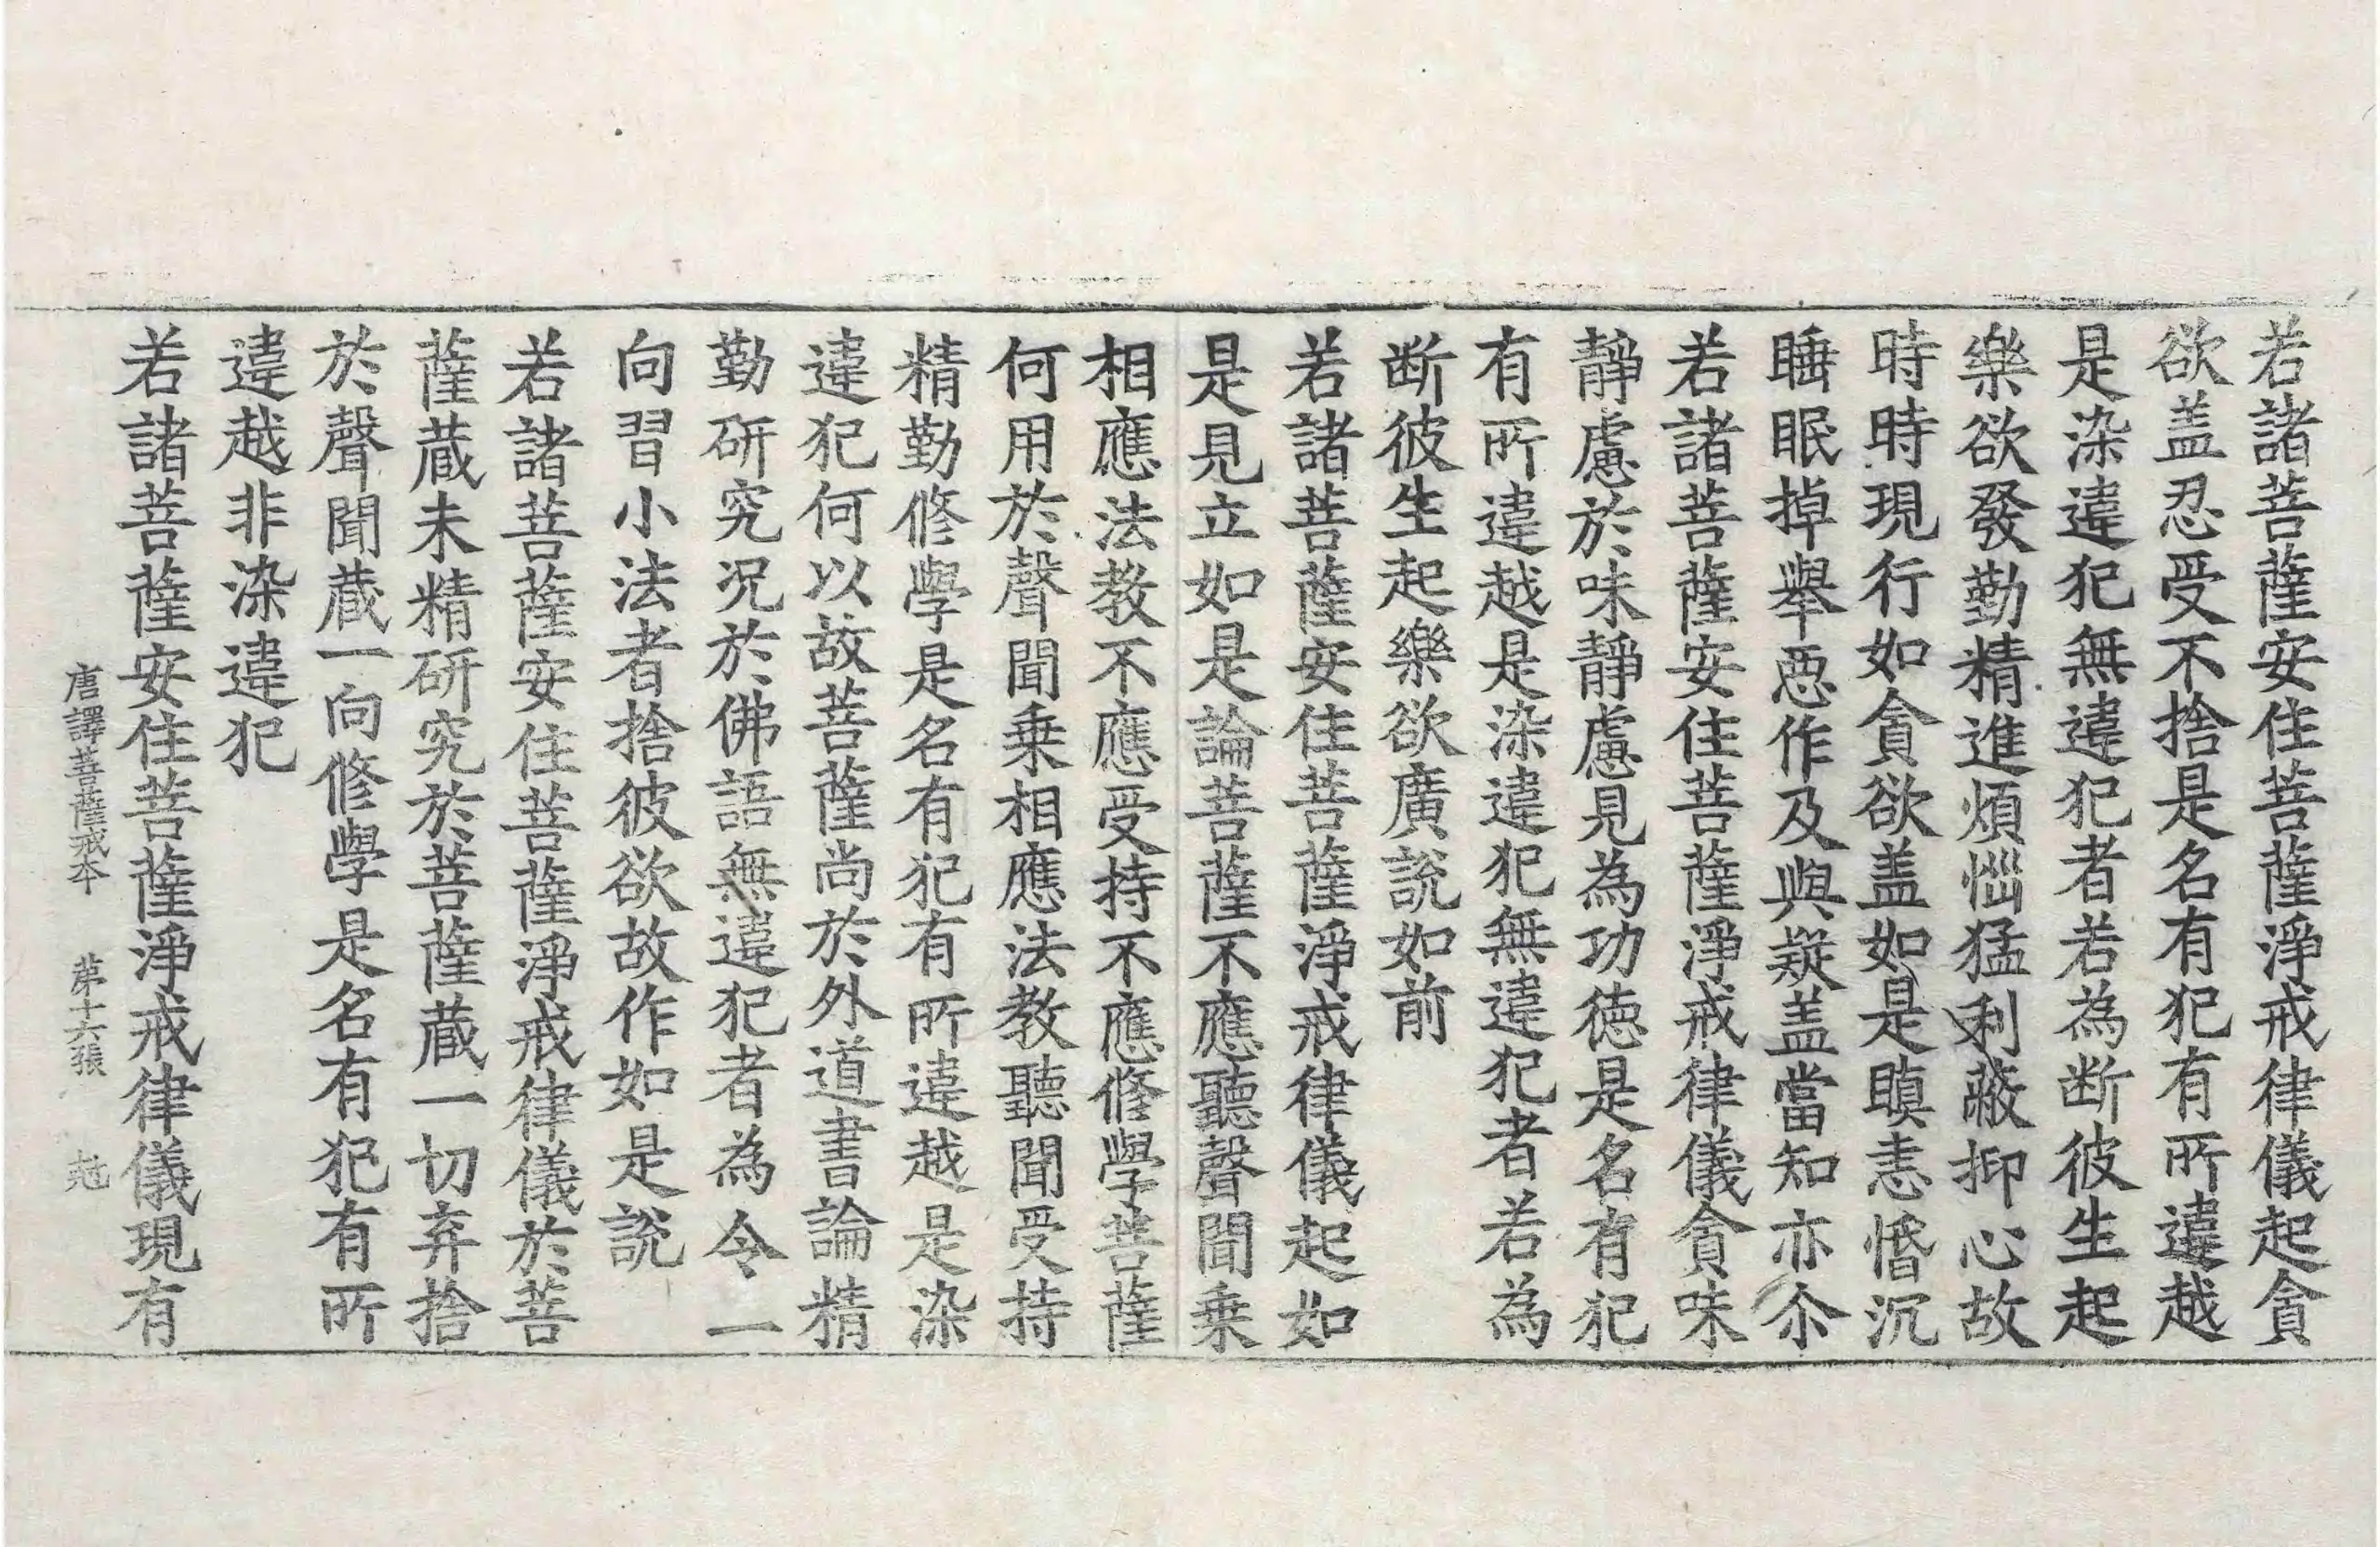 若諸菩薩安住菩薩淨戒律儀起貪
欲盖忍受不捨是名有犯有所違越
是染違犯無違犯者若為断彼生起
樂欲發勤精進煩惱猛利蔽抑心故
時時現行如貪欲盖如是瞋恚惛沉
睡眠掉舉惡作及與疑盖當知亦尒
若諸菩薩安住菩薩淨戒律儀貪味
靜慮於味靜慮見為功德是名有犯
有所違越是染違犯無違犯者若為
断彼生起樂欲廣說如前
若諸菩薩安住菩薩淨戒律儀起如
是見立如是論菩薩不應聽聲聞乗
相應法教不應受持不應修學菩薩
何用於聲聞乗相應法教聽聞受持
精勤修學是名有犯有所違越是染
違犯何以故菩薩尚於外道書論精
勤研究況於佛語無違犯者為令一
向習小法者捨彼欲故作如是說
若諸菩薩安住菩薩淨戒律儀於菩
薩蔵未精研究於菩薩蔵一切弃捨
於聲聞蔵一向修學是名有犯有所
違越非染違犯
若諸菩薩安住菩薩淨戒律儀現有
唐譯菩薩戒本 第十六張